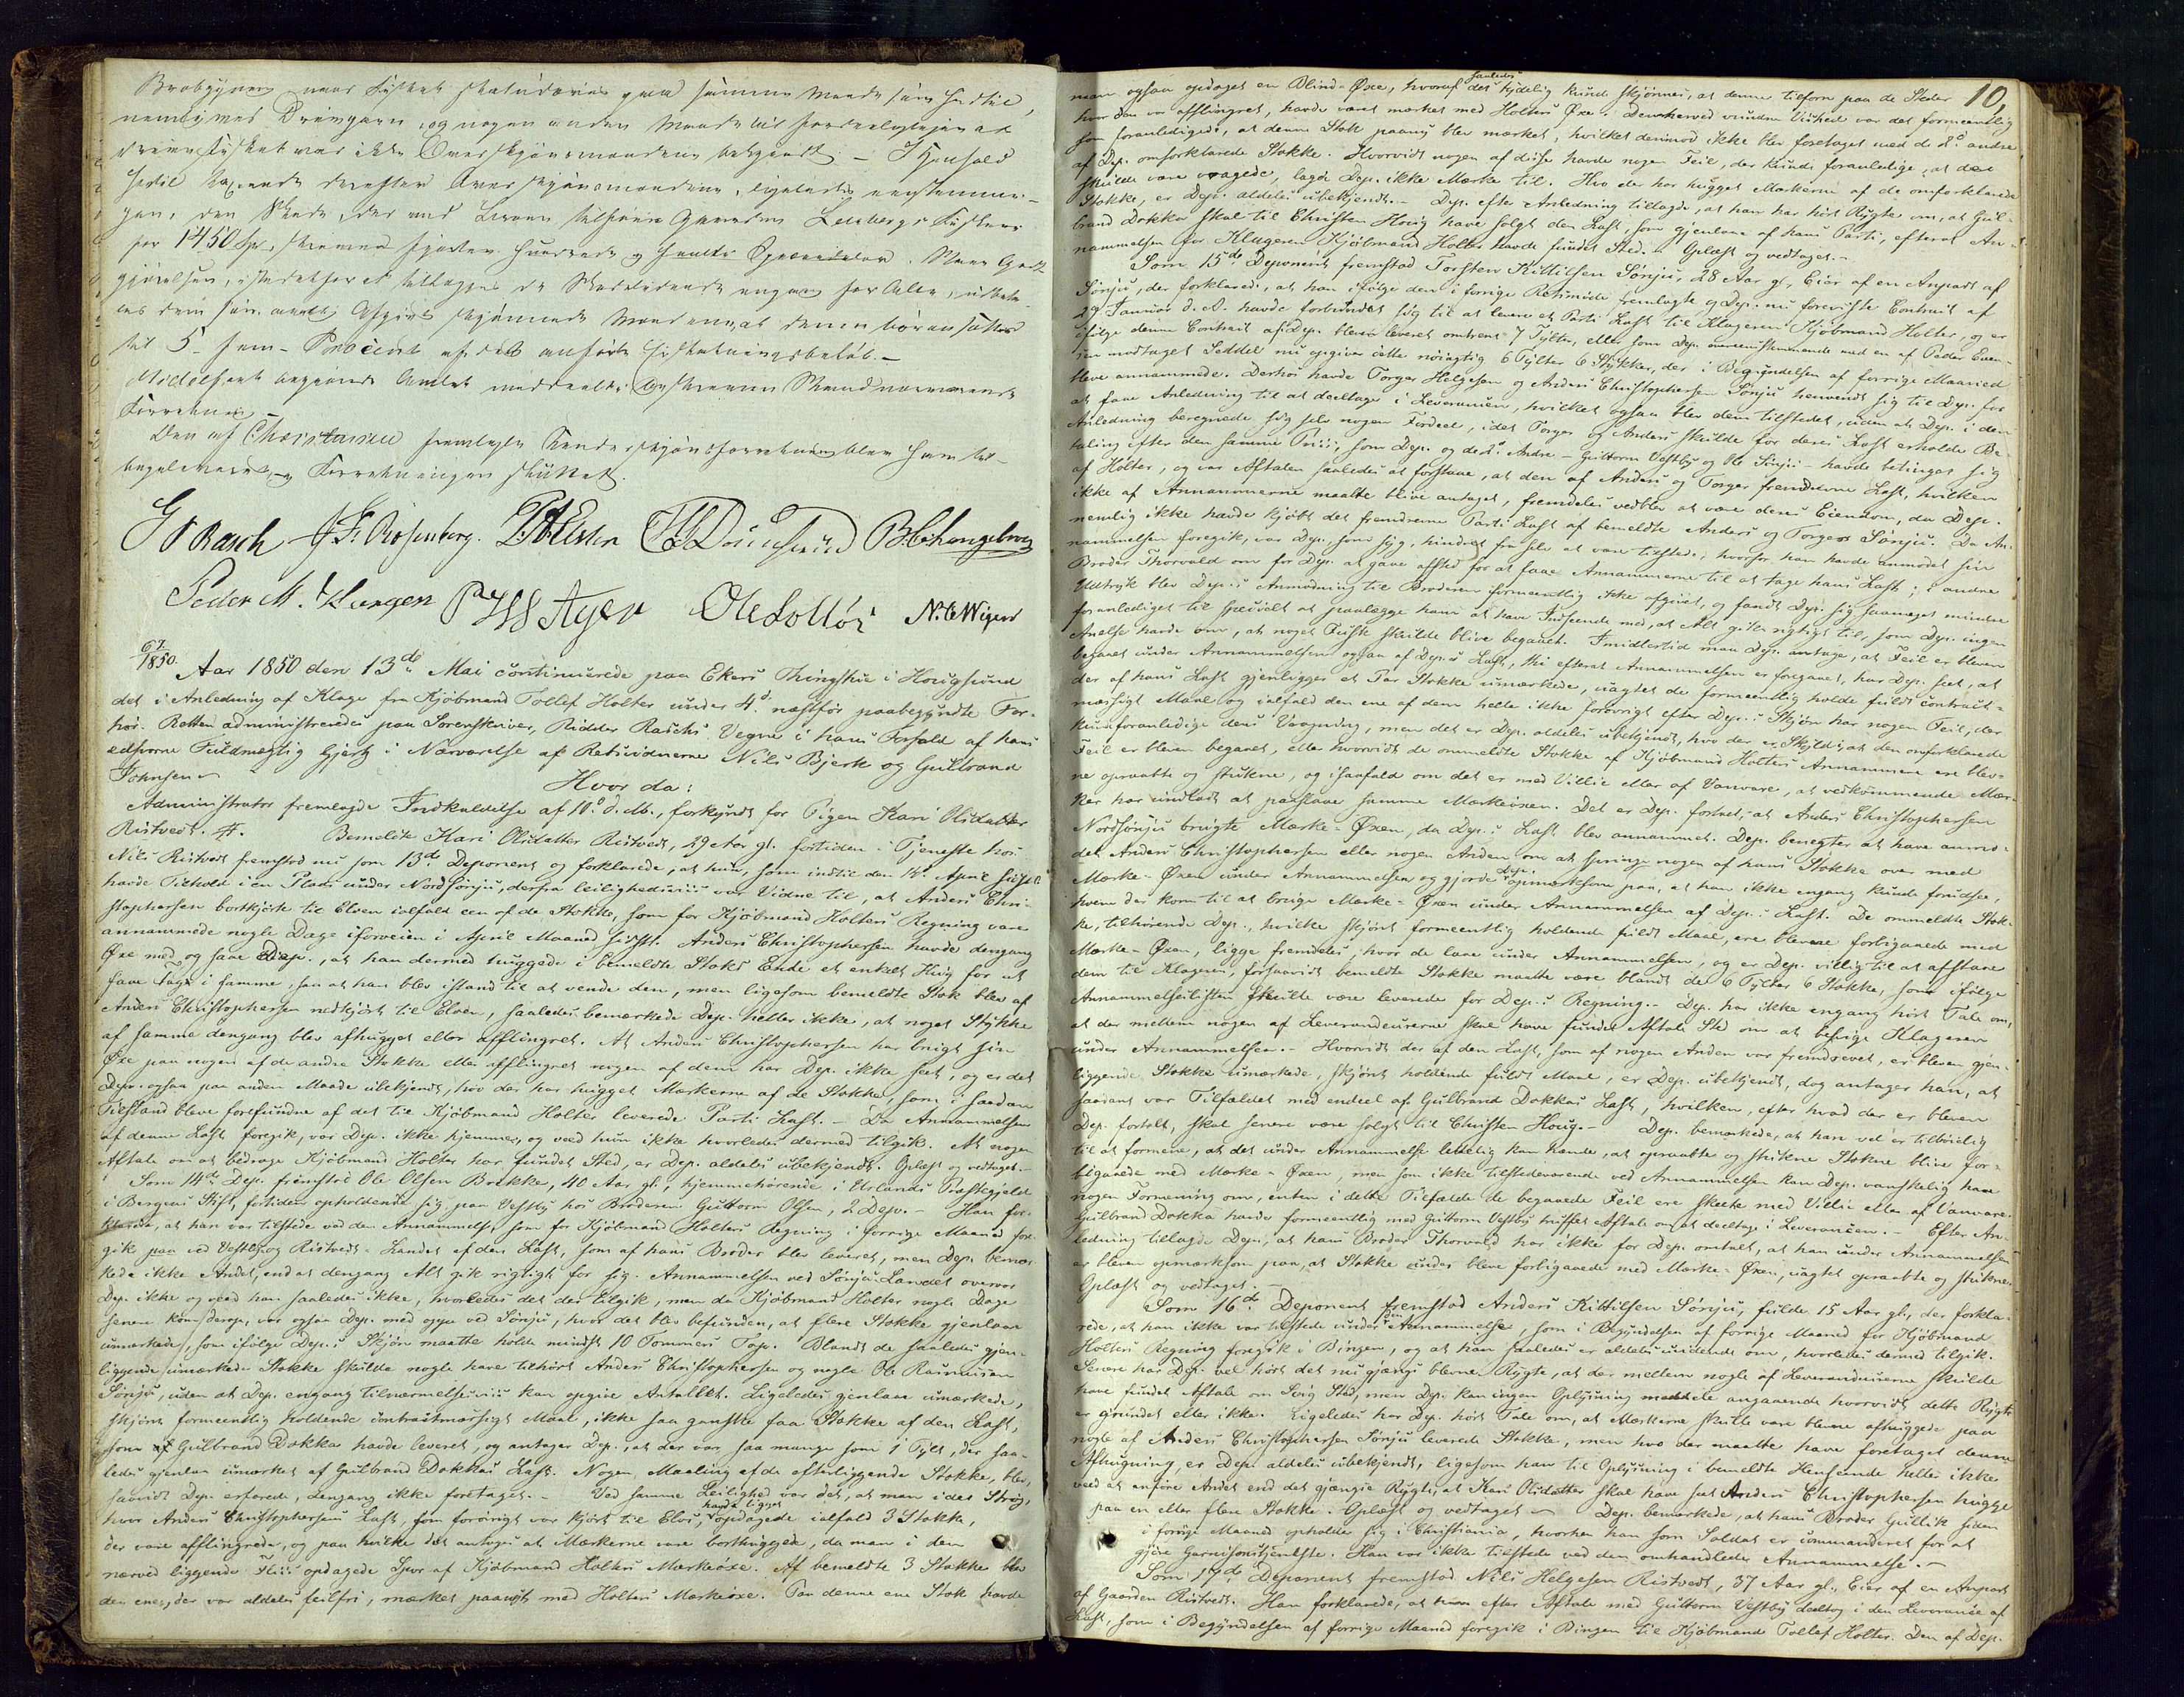 Brobygning med Fisket
nemlig med Drivgarn, og nogen anden Maade
Fisket var ikke Overskjønsmændene bekjendt. – I Henhold
hertil Overskjønsmændene,
gen, den Skade, der ved
for 1450 Spd., skriver fjorten Hundrede og femti Speciedaler.
til 5 – fem – Procent af det anførte
Forretning.
Den af Christensen fremlagte blev ham til-
bageleveret, og Forretningen sluttet.
G P Rasch J. Fr. Rosenberg.
Peder M. Ole Solløs
67/1850. Aar 1850 den 13de Mai continuerede paa Ekers Thingstue i Hougsund
det i Anledning af Klage fra Kjøbmand Tollef Holter under 4. næstfør paabegyndte For-
hør. Retten administreredes paa Sorenskriver, Ridder Raschs Vegne i hans Forfald af hans
edsvorne Fuldmægtig Gjertz i Nærværelse af Retsvidnerne Nils Bjerk og Gulbrand
Johnsen.
Hvor da:
Administrator fremlagde Indkaldelse af 10. d. M., forkyndt for Pigen Kari Olsdatter
Ristvedt. #. Bemeldte Kari Olsdatter Ristvedt, 29 Aar gl. fortiden i Tjeneste hos
Nils Ristvedt fremstod nu som 13de Deponent og forklarede, at hun, som indtil den 14. April sidstl.
havde Tilhold i en Plads under Nordsønju, derfra leilighedsviis var Vidne til, at Anders Chri-
stophersen bortkjørte til Elven ialfald een af de Stokke, som for Kjøbmand Holters Regning vare
annammede nogle Dage iforveien i April Maaned sidstl. Anders Christophersen havde dengang
Øxe med og saae Dep., at han dermed huggede i bemeldte Stoks Ende et enkelt Hug for at
faae Tag i samme, saa at han blev istand til at vende den, men ligesom bemeldte Stok blev af
Anders Christophersen nedkjørt til Elven, saaledes bemærkede Dep. heller ikke, at noget Stykke
af samme dengang blev afhugget eller afflingret. At Anders Christophersen har brugt sin
Øxe paa nogen af de andre Stokke eller afflingret nogen af dem har Dep. ikke seet, og er det
Dep. ogsaa paa anden Maade ubekjendt, hvo der har hugget Mærkerne af de Stokke, som i saadan
Tilstand bleve forefundne af det til Kjøbmand Holter leverede Parti Last. – Da Annammelsen
af denne Last foregik, var Dep. ikke hjemme, og veed hun ikke hvorledes dermed tilgik. At nogen
Aftale om at bedrage Kjøbmand Holter har fundet Sted, er Dep. aldeles ubekjendt. Oplæst og vedtaget. –
Som 14de Dep. fremstod Ole Olsen Brække, 40 Aar gl., hjemmehørende i Urlands Præstegjeld
i Bergens Stift, fortiden opholdende sig paa Vestby hos Broderen Guttorm Olsen, 2 Dep. – Han for-
klarede, at han var tilstede ved den Annammelse, som for Kjøbmand Holters Regning i forrige Maaned fore-
gik paa ved Vestby og Ristvedt Landet af den Last, som af hans Broder blev leveret, men Dep. bemær-
kede ikke Andet, end at dengang Alt gik rigtigt for sig. Annammelsen ved Sønju-Landet overvar
Dep. ikke og veed han saaledes ikke, hvorledes det der tilgik, men da Kjøbmand Holter nogle Dage
senere kom derop, var ogsaa Dep. med oppe ved Sønju, hvor det blev befunden, at flere Stokke gjenlaae
umærkede, som ifølge Dep.s Skjøn maatte holde mindst 10 Tommers Top. Blandt de saaledes gjen-
liggende umærkede Stokke skulde nogle have tilhørt Anders Christophersen og nogle Ole Rasmussen
Sønju, uden at Dep. engang tilnærmelsesviis kan opgive Antallet. Ligeledes gjenlaae umærkede,
skjønt formeentlig holdende contractmæssigt Maal, ikke saa ganske faa Stokke af den Last,
som af Gulbrand Dokka havde leveret, og antager Dep., at der var saa mange som 1 Tylt, der saa-
ledes gjenlaae umærket af Gulbrand Dokkas Last. Nogen Maaling af de efterliggende Stokke, blev,
saavidt Dep. erfarede, dengang ikke foretaget. – Ved samme Leilighed var det, at man i det Strøg,
hvor Anders Christophersens Last, som forøvrigt var kjørt til Elvs, havde ligget opdagede ialfald 3 Stokke,
der vare afflingrede, og paa hvilke det antoges at Mærkerne vare borthuggede, da man i den
nærved liggende Fliis opdagede Spor af Kjøbmand Holters Mærkeøxe. Af bemeldte 3 Stokke blev
den ene, der var aldeles feilfri, mærket paanyt med Holters Mærkeøxe. Paa denne ene Stok havde
10,
man ogsaa opdaget en Blind-Øxe, hvoraf saaledes det tydelig kunde skjønnes, at denne tilforn paa de Steder
hvor den var afflingret, havde været mærket med Holters Øxe. Den herved vundne Vished var det formeentlig
som foranledigede, at denne Stok paany blev mærket, hvilket derimod ikke blev foretaget med de 2de andre
af Dep. omforklarede Stokke. Hvorvidt nogen af disse havde nogen Feil, der kunde foranledige, at den
skulde være vraget, lagde Dep. ikke Mærke til. Hvo der har hugget Mærkerne af de omforklarede
Stokke, er Dep. aldeles ubekjendt. – Dep. efter Anledning tillagde, at han har hørt Rygte om, at Gul-
brand Dokka skal til Christen Houg have solgt den Last, som gjenlaae af hans Parti, efterat An-
nammelsen for Klageren Kjøbmand Holter havde fundet Sted. – Oplæst og vedtaget. –
Som 15de Deponent fremstod Torsten Kittilsen Sønju, 28 Aar gl., Eier af en Anpart af
Sønju, der forklarede, at han ifølge den i forrige Retsmøde fremlagte og Dep. nu foreviste Contract af
29 Januar d. A. havde forbundet sig til at levere et Parti Last til Klageren Kjøbmand Holter, og er
ifølge denne Contract af Dep. bleven leveret omtrent 7 Tylter, eller som Dep. overensstemmende med en af Peder Even-
sen modtaget Seddel nu opgiver dette nøiagtig 6 Tylter 6 Stykker, der i Begyndelsen af forrige Maaned
bleve annammede. Derhos havde Torger Helgesen og Anders Christophersen Sønju henvendt sig til Dep. for
at faae Anledning til at deeltage i Leverancen, hvilket ogsaa blev dem tilstedet, uden at Dep. i den
Anledning beregnede sig selv nogen Fordeel, idet Torger og Anders skulde for deres Last erholde Be-
taling efter den samme Priis, som Dep. og de 2 Andre – Guttorm Vestby og Ole Sønju – havde betinget sig
af Holter, og var Aftalen saaledes at forstaae, at den af Anders og Torger fremdrevne Last, hvilken
ikke af Annammerne maatte blive antaget, fremdeles vedblev at være deres Eiendom, da Dep.
nemlig ikke havde kjøbt det fremdrevne Parti Last af bemeldte Anders og Torger Sønju. Da An-
nammelsen foregik, var Dep. som syg, hindret fra selv at være tilstede, hvorfor han havde anmodet sin
Broder Thorvald om for Dep. at gaae afsted for at faae Annammerne til at tage hans Last; i andre
Udtryk blev Dep.s Anmodning til Broderen formeentlig ikke afgivet, og fandt Dep. sig saameget mindre
foranlediget til specialt at paalægge ham at have Indseende med, at Alt gik rigtigt til, som Dep. ingen
Anelse havde om, at noget Fusk skulde blive begaaet. Imidlertid maa Dep. antage, at Feil er bleven
begaaet under Annammelsen ogsaa af Dep.s Last, thi efterat Annammelsen er foregaaet, har Dep. seet, at
der af hans Last gjenligger et Par Stokke umærkede, uagtet de formeentlig holde fuldt contract-
mæssigt Maal og ialfald den ene af dem heller ikke forøvrigt efter Dep.s Skjøn har nogen Feil, der
kunde foranledige dens Vragning, men det er Dep. aldeles ubekjendt, hvo der er Skyld i, at den omforklarede
Feil er bleven begaaet, eller hvorvidt de ommeldte Stokke af Kjøbmand Holters Annammere ere blev-
ne opraabte og strukne, og isaafald om det er med Villie eller af Vanvare, at vedkommende Mær-
ker har undladt at paaslaae samme Mærkeøxen. Det er Dep. fortalt, at Anders Christophersen
Nordsønju brugte Mærke-Øxen, da Dep.s Last blev annammet. Dep. benegter at have anmo-
det Anders Christophersen eller nogen Anden om at springe nogen af hans Stokke over med
Mærke-Øxen under Annammelsen og gjorde Dep. opmærksom paa, at han ikke engang kunde forudsee,
hvem der kom til at bruge Mærke-Øxen under Annammelsen af Dep.s Last. De ommeldte Stok-
ke, tilhørende Dep., hvilke skjønt formeentlig holdende fuldt Maal, ere blevne forbigaaede med
Mærke-Øxen, ligge fremdeles, hvor de laae under Annammelsen, og er Dep. villig til at afstaae
dem til Klageren, forsaavidt bemeldte Stokke maatte være blandt de 6 Tylter 6 Stokke, som ifølge
Annammelseslisten skulde være leverede for Dep.s Regning. – Dep. har ikke engang hørt Tale om,
at der mellem nogen af Leverandeurerne skal have fundet Aftale Sted om at besvige Klageren
under Annammelsen. – Hvorvidt der af den Last, som af nogen Anden var fremdrevet, er bleven gjen-
liggende Stokke umærkede, skjønt holdende fuldt Maal, er Dep. ubekjendt, dog antager han, at
saadant var Tilfældet med endeel af Gulbrand Dokkas Last, hvilken, efter hvad der er bleven
Dep. fortalt, skal senere være solgt til Christen Houg. – Dep. bemærkede, at han vel er tilbøielig
til at formene, at det under Annammelse lettelig kan hænde, at opraabte og strukne Stokke blive for-
bigaaede med Mærke-Øxen, men som ikke tilstedeværende ved Annammelsen kan Dep. vanskelig have
nogen Formening om, enten i dette Tilfælde de begaaede Feil ere skeete med Villie eller af Vanvare.
Gulbrand Dokka havde formeentlig med Guttorm Vestby truffet Aftale om at deeltage i Leverancen. – Efter An-
ledning tillagde Dep., at hans Broder Thorvald har ikke for Dep. omtalt, at han under Annammelsen
er bleven opmærksom paa, at Stokke bleve forbigaaede med Mærke-Øxen, uagtet opraabte og strukne.
Oplæst og vedtaget. –
Som 16de Deponent fremstod Anders Kittilsen Sønju, fulde 15 Aar gl., der forkla-
rede, at han ikke var tilstede under den Annammelse, som i Begyndelsen af forrige Maaned for Kjøbmand
Holters Regning foregik i Bingen, og at han saaledes er aldeles uvidende om, hvorledes dermed tilgik.
Senere har Dep. vel hørt det nu gjængs blevne Rygte, at der mellem nogle af Leverandeurerne skulde
have fundet Aftale om Svig Sted, men Dep. kan ingen Oplysning meddele angaaende hvorvidt dette Rygte
er grundet eller ikke. Ligeledes har Dep. hørt Tale om, at Mærkerne skulle være blevne afhuggede paa
nogle af Anders Christophersen Sønju leverede Stokke, men hvo der maatte have foretaget denne
Afhugning, er Dep. aldeles ubekjendt, ligesom han til Oplysning i bemeldte Henseende heller ikke
veed at anføre Andet end det gjængse Rygte, at Kari Olsdatter skal have seet Anders Christophersen hugge
paa en eller flere Stokke. Oplæst og vedtaget – Dep. bemærkede, at hans Broder Gullik siden
i forrige Maaned opholder sig i Christiania, hvorhen han som Soldat er commanderet for at
gjøre Garnisonstjeneste. Han var ikke tilstede ved den omhandlede Annammelse. –
Som 17de Deponent fremstod Nils Helgesen Ristvedt, 37 Aar gl., Eier af en Anpart
af Gaarden Ristvedt. Han forklarede, at han efter Aftale med Guttorm Vestby deeltog i den Leverance af
Last, som i Begyndelsen af forrige Maaned foregik i Bingen til Kjøbmand Tollef Holter. Den af Dep.